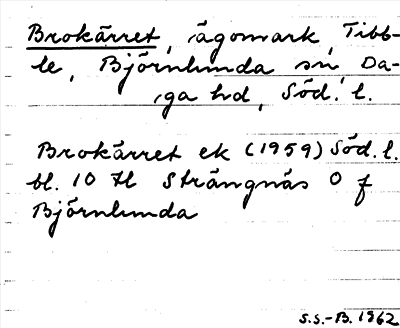 Brokärret, ägomark, Tibb-
le, Björnlunda sn, Da-
ga hd, Söd. l.
Brokärret ek (1959) Söd. l.
bl. 10 tl Strängnäs O f
Björnlunda
S.S.-B. 1962